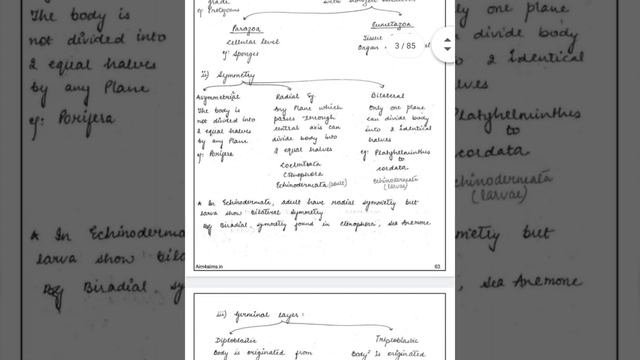 grade
eg: Protozoans
Parazoa
Cellular level
eg: Sponges
Eumetazoa
Tissue
Organ
3 / 85
ii) Symmetry
Asymmetrical
The body is
not divided into
2 equal halves
by any Plane
eg: Porifera
Radial Sy
Any Plane which
passes through
central axis can
divide body into
2 equal halves
Coelentrata
Ctenophora
Echinodermata (adult)
Bilateral
Only one plane
can divide body
into 2 identical
halves
eg: Platyhelminthes
to
cordata
Echinodermata
(larvae)
* In Echinodermate, adult have radial symmetry but
larva show Bilateral Symmetry
Biradial symmetry found in ctenophore, Sea Anemone
Aim4aiims.in
63
iii) Germinal layers:
Diploblastic
Body is originated from
Triploblastic
Body is originated
The body is
not divided into
2 equal halves
by any Plane
eg: Porifera
* In Echinoderma
larva show Bila
Biradial sy
only one plane
divide body
2 identical
lves
Platyhelminthes
to
cordata
chinodermata
(larvae)
metry but
, Sea Anemone